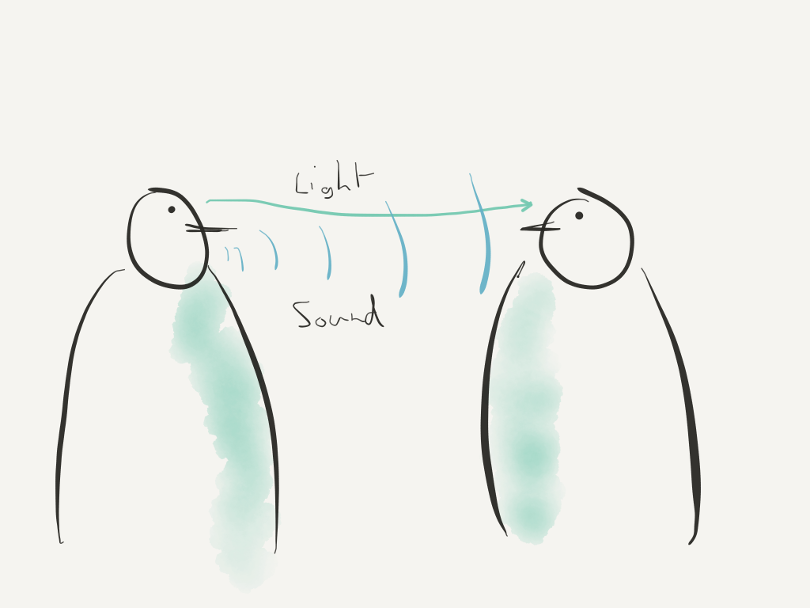 Light
Sound